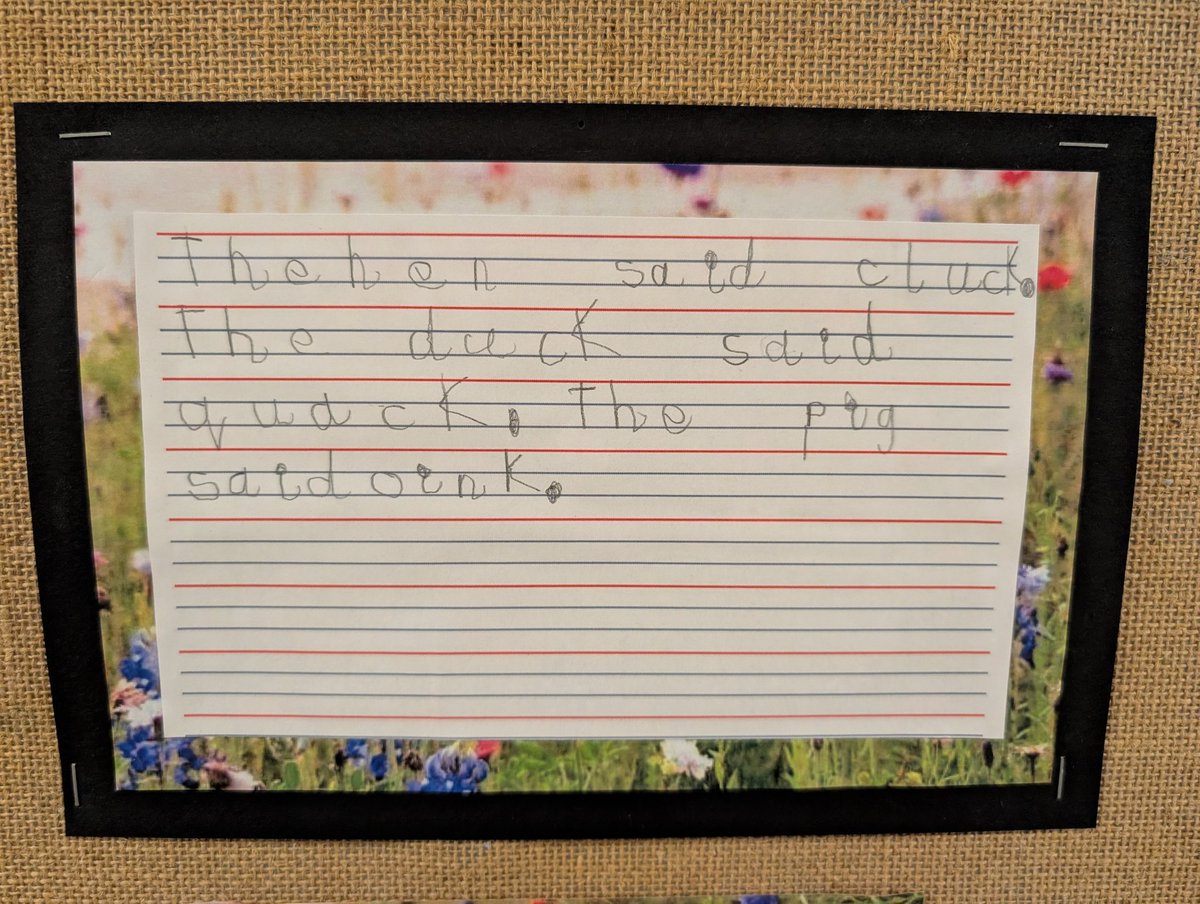 The hen said cluck.
The duck said
quack. The pig
said oink.